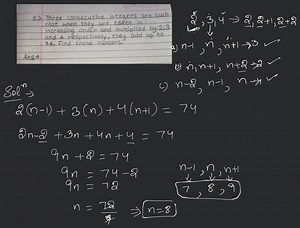 5.3 Three consecutive integers are such
that when they are taken in
increasing order and multiplied by 2, 3
and 4 respectively, they add up to
74. Find these numbers.
Ans 4
2, 3, 4 → 2, 2+1, 2+2
a) n-1, n, n+1 → 3 ✓
b) n, n+1, n+2 → 2 ✓
c) n-2, n-1, n → 4 ✓
Solⁿ
2(n-1) + 3(n) + 4(n+1) = 74
2n-2 + 3n + 4n + 4 = 74
9n + 2 = 74
9n = 74 - 2
9n = 72
n = 72/9 ⇒ n = 8
n-1, n, n+1
7, 8, 9